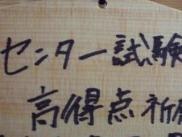 センター試験
高得点祈